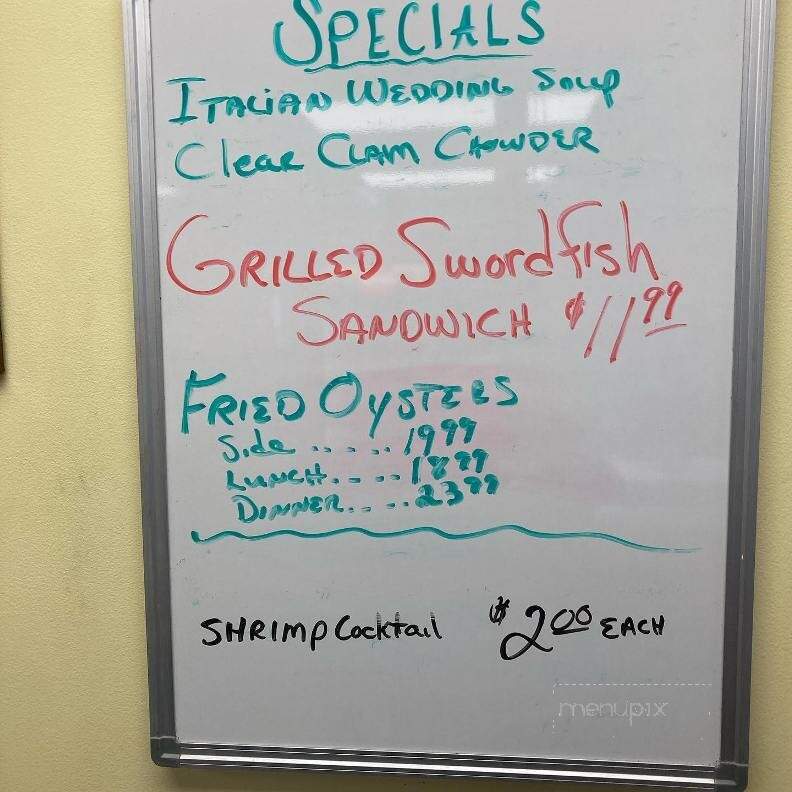 SPECIALS
ITALIAN WEDDING Soup
Clear CLAM CHOWDER
GRILLED Swordfish
SANDWICH $11.99
FRIED OYSTERS
Side ...... 19.99
LUNCH.... 18.99
DINNER..... 23.99
SHRIMP Cocktail $2.00 EACH
menupix